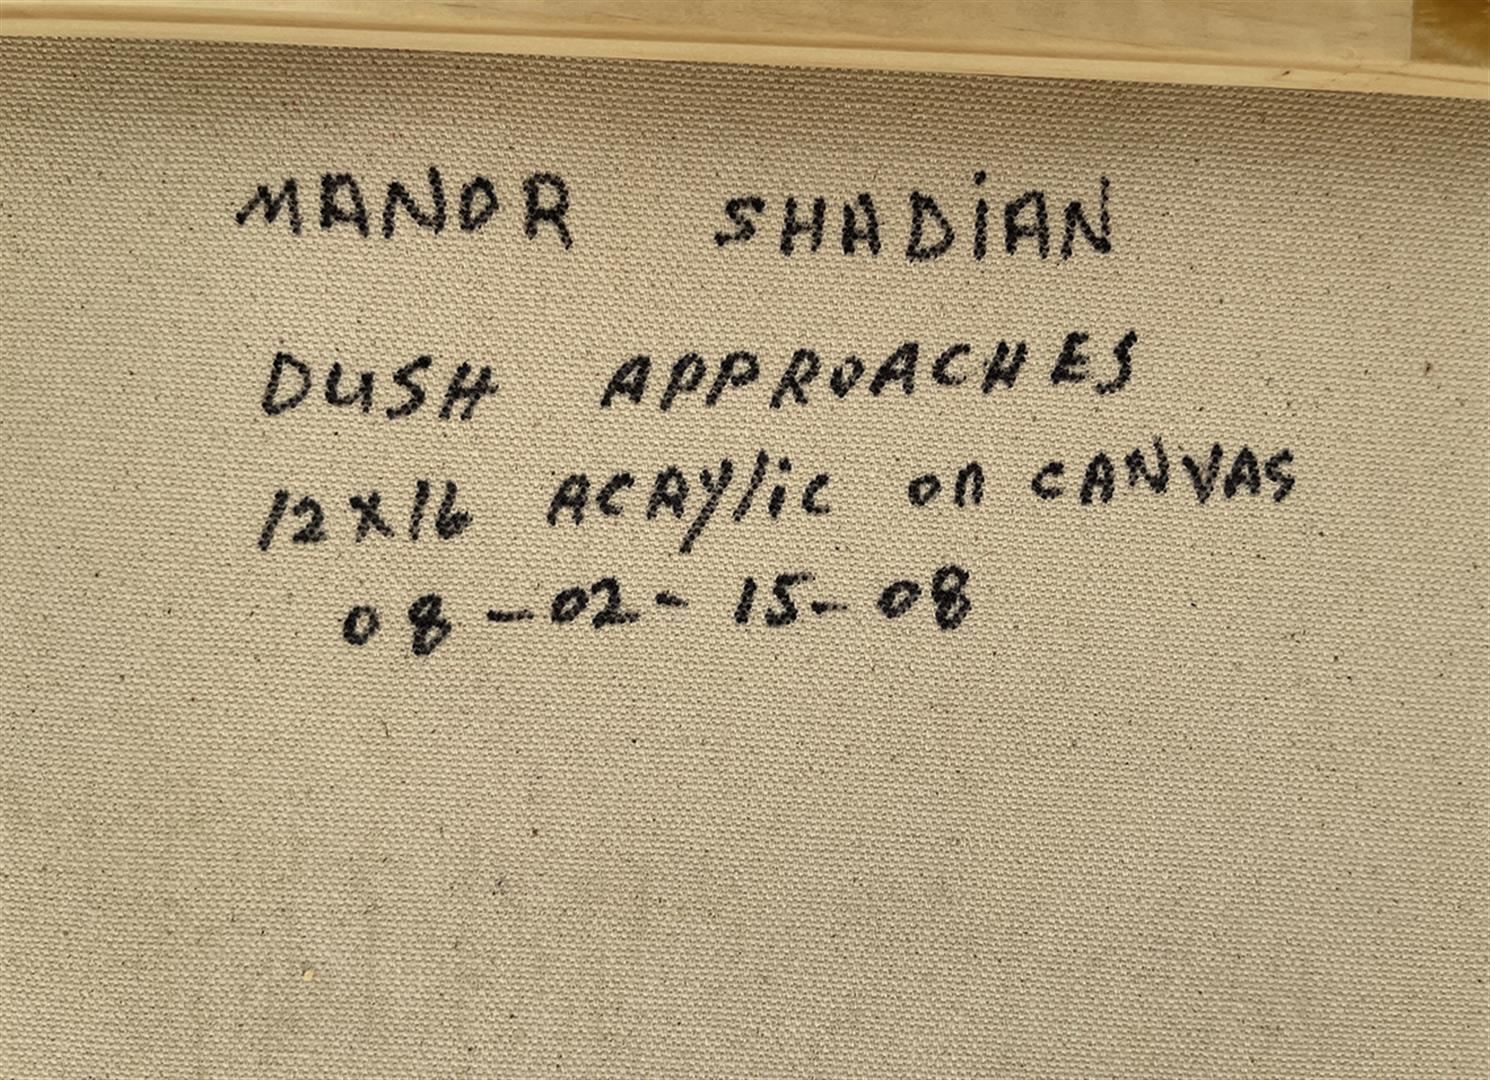 MANOR SHADiAN
DUSH APPROACHES
12x16 ACRYlic on CANVAS
08-02-15-08